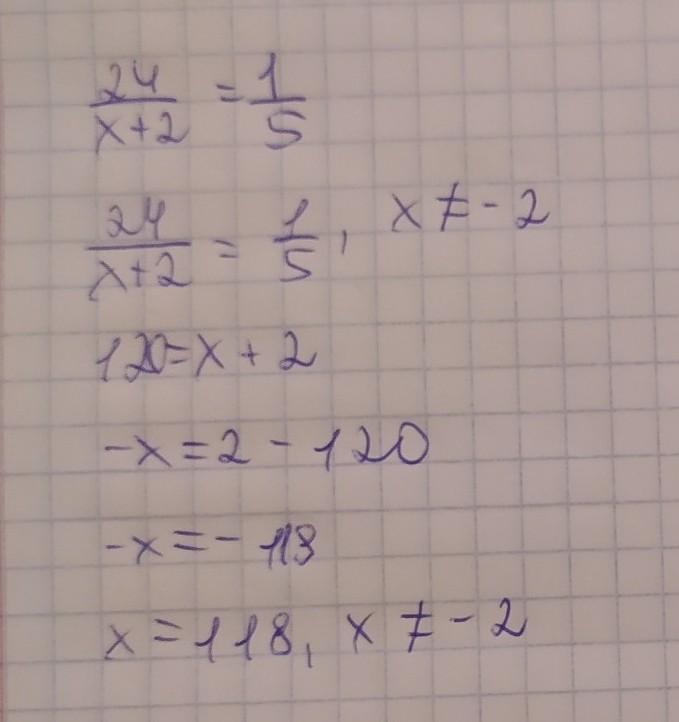 24/x+2 = 1/5
24/x+2 = 1/5, x ≠ - 2
120=x + 2
-x = 2 - 120
-x = - 118
x = 118, x ≠ - 2